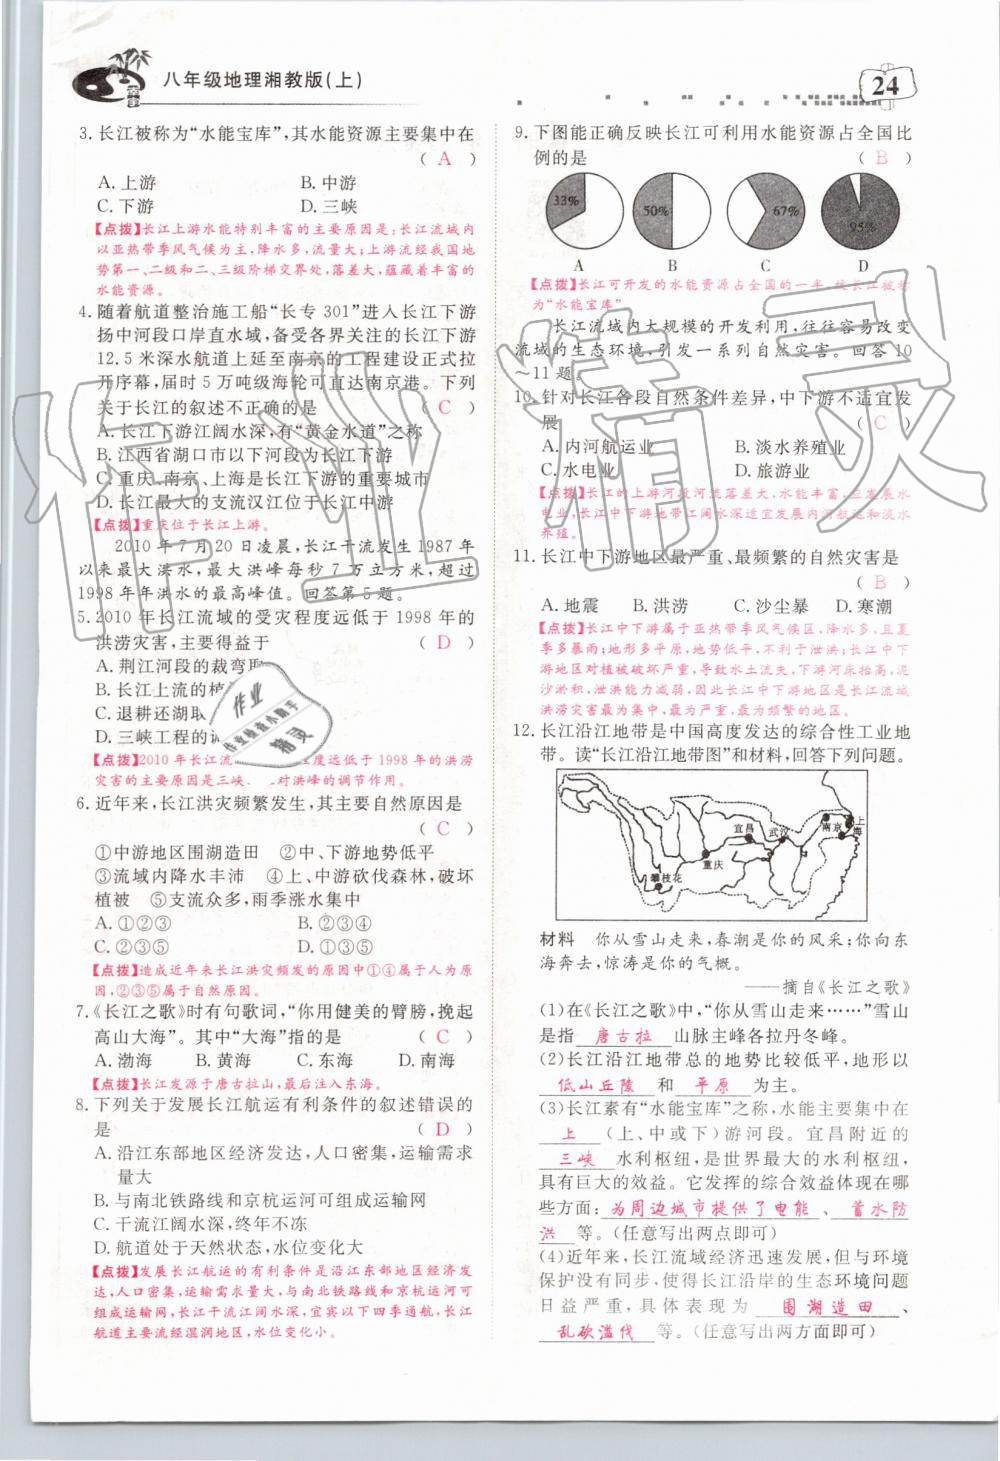 八年级地理湘教版(上)
24
3.长江被称为“水能宝库”,其水能资源主要集中在
( A )
A.上游 B.中游
C.下游 D.三峡
【点拨】长江上游水能特别丰富的主要原因是:长江流域内
以亚热带季风气候为主,降水多,流量大;上游流经我国地
势第一、二级和二、三级阶梯交界处,落差大,蕴藏着丰富的
水能资源。
4.随着航道整治施工船“长专 301”进入长江下游
扬中河段口岸直水域,备受各界关注的长江下游
12.5 米深水航道上延至南京的工程建设正式拉
开序幕,届时 5 万吨级海轮可直达南京港。下列
关于长江的叙述不正确的是 ( C )
A.长江下游江阔水深,有“黄金水道”之称
B.江西省湖口市以下河段为长江下游
C.重庆、南京、上海是长江下游的重要城市
D.长江最大的支流汉江位于长江中游
【点拨】重庆位于长江上游。
2010 年 7 月 20 日凌晨,长江干流发生 1987 年
以来最大洪水,最大洪峰每秒 7 万立方米,超过
1998 年年洪水的最高峰值。回答第 5 题。
5.2010 年长江流域的受灾程度远低于 1998 年的
洪涝灾害,主要得益于 ( D )
A.荆江河段的裁弯取
B.长江上流的植
C.退耕还湖取
D.三峡工程的
【点拨】2010年长江流 度远低于1998年的洪涝
灾害的主要原因是三峡 对洪峰的调节作用。
6.近年来,长江洪灾频繁发生,其主要自然原因是
( C )
①中游地区围湖造田 ②中、下游地势低平
③流域内降水丰沛 ④上、中游砍伐森林,破坏
植被 ⑤支流众多,雨季涨水集中
A.①②③ B.②③④
C.②③⑤ D.①③⑤
【点拨】造成近年来长江洪灾频发的原因中①④属于人为原
因,②③⑤属于自然原因。
7.《长江之歌》时有句歌词,“你用健美的臂膀,挽起
高山大海”。其中“大海”指的是 ( C )
A.渤海 B.黄海 C.东海 D.南海
【点拨】长江发源于唐古拉山,最后注入东海。
8.下列关于发展长江航运有利条件的叙述错误的
是 ( D )
A.沿江东部地区经济发达,人口密集,运输需求
量大
B.与南北铁路线和京杭运河可组成运输网
C.干流江阔水深,终年不冻
D.航道处于天然状态,水位变化大
【点拨】发展长江航运的有利条件是沿江东部地区经济发
达,人口密集,运输需求量大,与南北铁路线和京杭运河可
组成运输网,长江干流江阔水深,宜宾以下四季通航,长江
航道主要流经湿润地区,水位变化小。
9.下图能正确反映长江可利用水能资源占全国比
例的是 ( B )
33% 50% 67% 95%
A B C D
【点拨】长江可开发的水能资源占全国的一半,故长江被称
为“水能宝库”
长江流域内大规模的开发利用,往往容易改变
流域的生态环境,引发一系列自然灾害。回答 10
～11 题。
10.针对长江各段自然条件差异,中下游不适宜发
展 ( C )
A.内河航运业 B.淡水养殖业
C.水电业 D.旅游业
【点拨】长江的上游河段河流落差大,水能丰富,应发展水
电业,长江中下游地带江阔水深适宜发展内河航运和淡水
养殖。
11.长江中下游地区最严重、最频繁的自然灾害是
( B )
A.地震 B.洪涝 C.沙尘暴 D.寒潮
【点拨】长江中下游属于亚热带季风气候区,降水多,且夏
季多暴雨;地形多平原,地势低平,不利于泄洪;长江中下
游地区对植被破坏严重,导致水土流失,下游河床抬高,泥
沙淤积,泄洪能力减弱,因此长江中下游地区是长江流域
洪涝灾害最为集中,最为严重,最为频繁的地区。
12.长江沿江地带是中国高度发达的综合性工业地
带。读“长江沿江地带图”和材料,回答下列问题。
攀枝花 重庆 宜昌 武汉 南京 上海
材料 你从雪山走来,春潮是你的风采;你向东
海奔去,惊涛是你的气概。
——摘自《长江之歌》
(1)在《长江之歌》中,“你从雪山走来……”雪山
是指 唐古拉 山脉主峰各拉丹冬峰。
(2)长江沿江地带总的地势比较低平,地形以
低山丘陵 和 平原 为主。
(3)长江素有“水能宝库”之称,水能主要集中在
上 (上、中或下)游河段。宜昌附近的
三峡 水利枢纽,是世界最大的水利枢纽,
具有巨大的效益。它发挥的综合效益体现在哪
些方面:为周边城市提供了电能、蓄水防
洪 等。(任意写出两点即可)
(4)近年来,长江流域经济迅速发展,但与环境
保护没有同步,使得长江沿岸的生态环境问题
日益严重,具体表现为 围湖造田 、
乱砍滥伐 等。(任意写出两方面即可)
作业精灵
作业
作业检查小助手
精灵